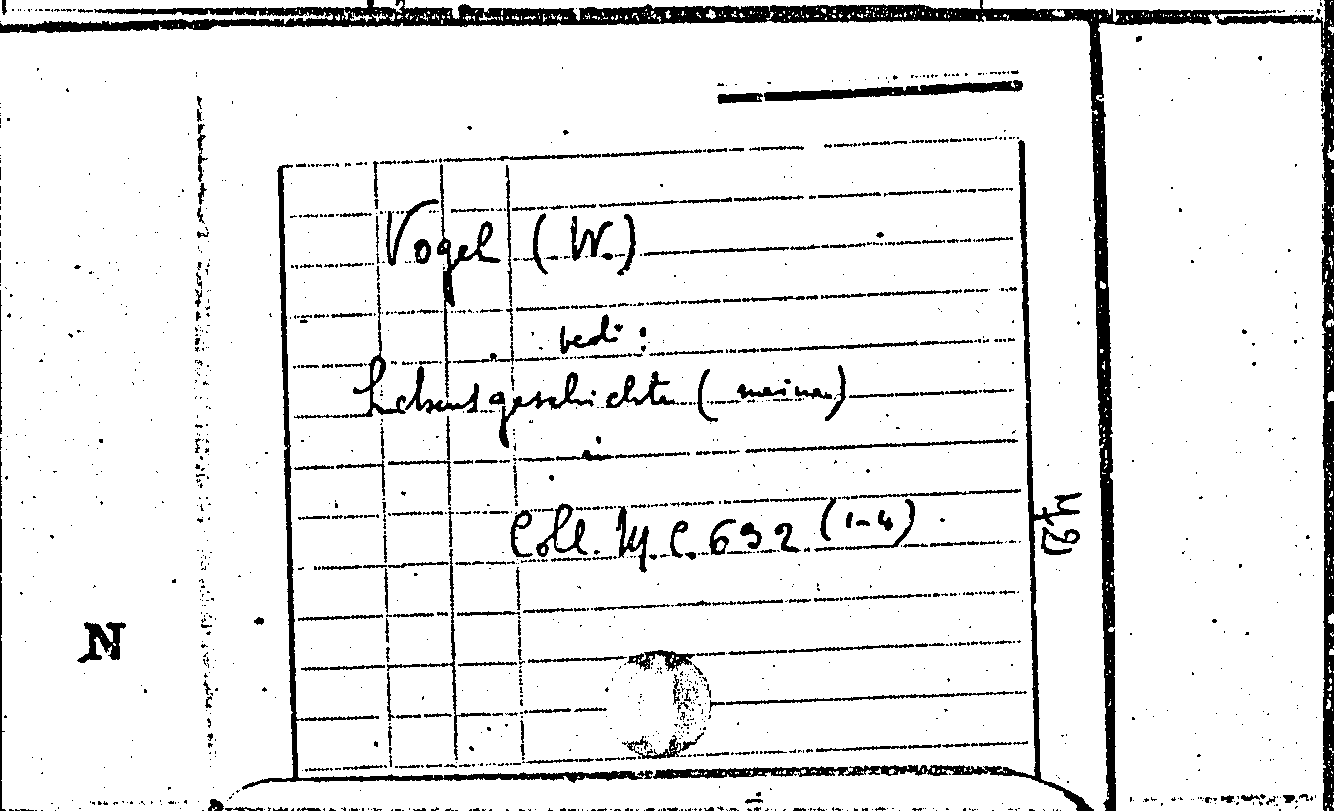 Vogel (W.)
vedi:
Lebensgeschichte (meine)
in
Coll. M. C. 692 (1-4).
N